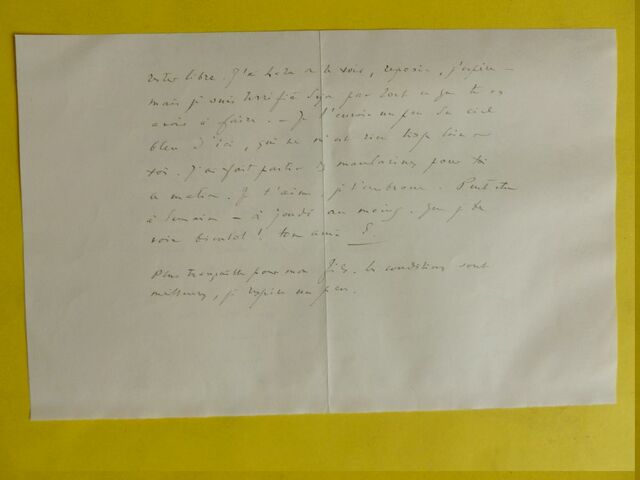 rester libre. J'ai hâte de te voir, reposée, j'espère –
mais je suis terrifié déjà par tout ce que tu as
à faire. – Je t'envoie un peu du ciel
bleu d'ici, qui ne m'est rien trop loin de
toi. J'ai fait partir mandarines pour toi
ce matin. Je t'aime, je t'embrasse. Peut-être
à demain – à jeudi au moins. Que je te
voie bientôt ! ton ami
Plus tranquille pour mon fils. les conditions sont
meilleures, je respire un peu.